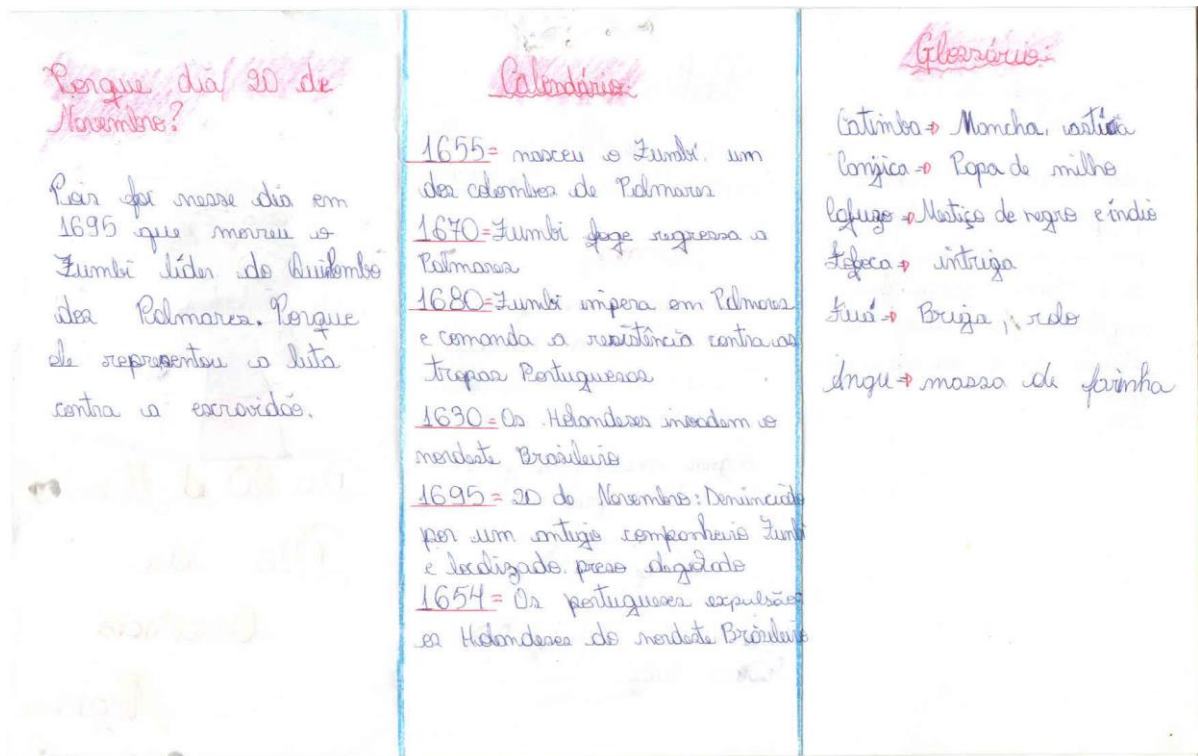 Porque dia 20 de
Novembro?
Pois foi nesse dia em
1695 que morreu o
Zumbi líder do Quilombo
dos Palmares. Porque
ele representou a luta
contra a escravidão.
Calendário:
1655= nasceu o Zumbi. um
dos colombos de Palmares
1670=Zumbi foge regressa a
Palmares
1680=Zumbi impera em Palmares
e comanda a resistência contra as
tropas Portuguesas
1630=Os Holandeses invadem o
nordeste Brasileiro
1695= 20 de Novembro: Denunciado
por um antigo companheiro Zumbi
e localizado. preso degolado
1654= Os portugueses expulsão
os Holandeses do nordeste Brasileiro
Glossário:
Catimba→ Mancha,
Canjica→ Papa de milho
Cafuzo→ Mestiço de negro e índio
Fofoca→ intriga
Fuá→ Briga, rolo
Angu→ massa de farinha